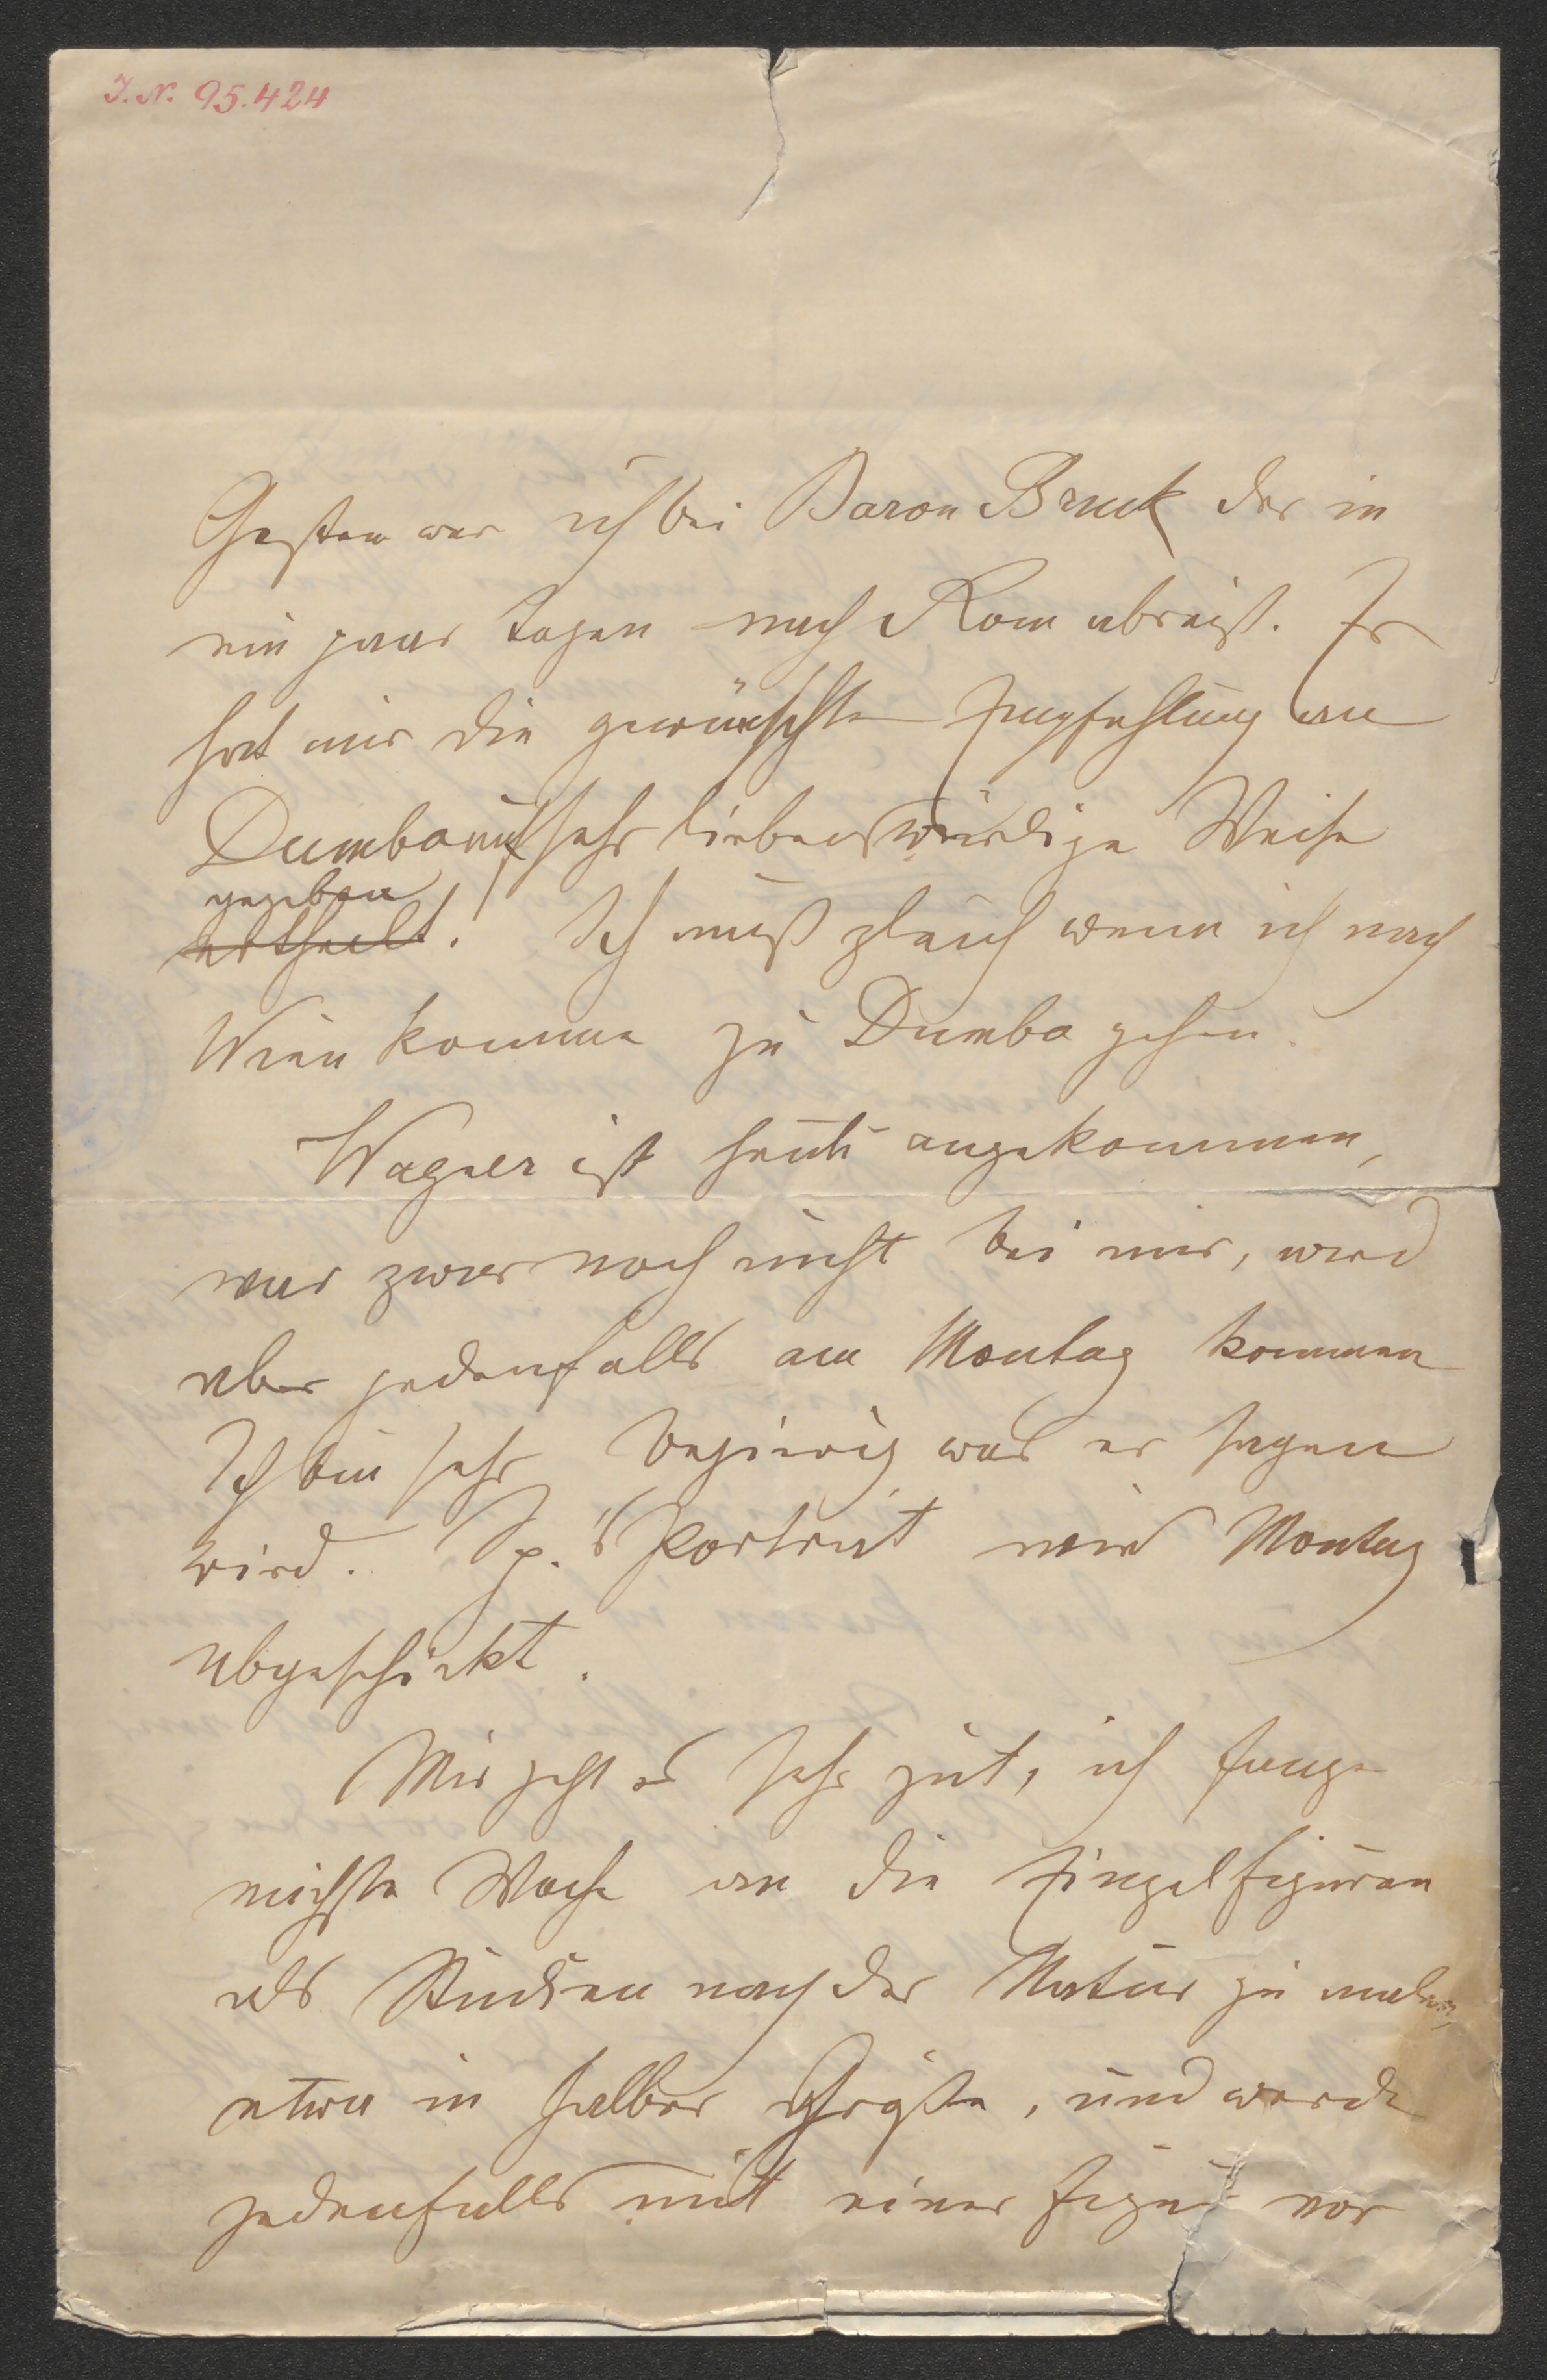 I. N. 95.424
Gestern war ich bei Baron Bruck der in
ein paar Tagen nach Rom abreist. Er
hat mir die gewünschte Empfehlung an
Dumba auf sehr liebenswürdige Weise
gegeben
ertheilt. Ich muß gleich wenn ich nach
Wien komme zu Dumba gehen.
Wagner ist heute angekommen,
war zwar noch nicht bei mir, wird
aber jedenfalls am Montag kommen
Ich bin sehr begierig was er sagen
wird. Sp.'s Portrait wird Montag
abgeschickt.
Mir geht es sehr gut, ich fange
nächste Woche an die Einzelfiguren
als Studien nach der Natur zu malen,
etwa in halber Größe, und werde
jedenfalls mit einer Figur vor